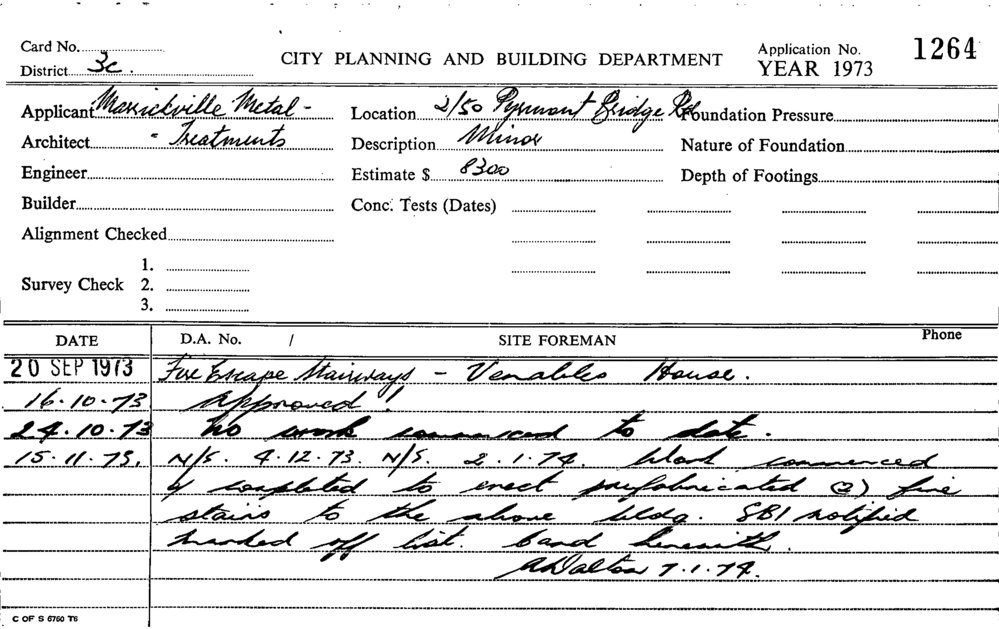 Card No.
District 3c.
CITY PLANNING AND BUILDING DEPARTMENT
Application No. 1264
YEAR 1973
Applicant Marrickville Metal - Location 2/50 Pyrmont Bridge Rd Foundation Pressure
Architect " Treatments Description Minor Nature of Foundation
Engineer Estimate $ 8300 Depth of Footings
Builder Conc. Tests (Dates)
Alignment Checked
Survey Check 1.
2.
3.
DATE D.A. No. / SITE FOREMAN Phone
20 SEP 1973 Fire Escape Stairways - Venables House.
16.10.73 Approved!
24.10.73 No work commenced to date.
15.11.73. N/S. 4.12.73. N/S. 2.1.74. Work commenced
& completed to erect prefabricated (2) fire
stairs to the above bldg. SBI notified
marked off list. Card herewith.
A Dalton 7.1.74.
C OF S 6760 T6